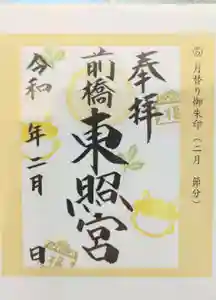 ⑤ 月替り御朱印(二月 節分)
奉拝
前橋東照宮
令和 年二月 日